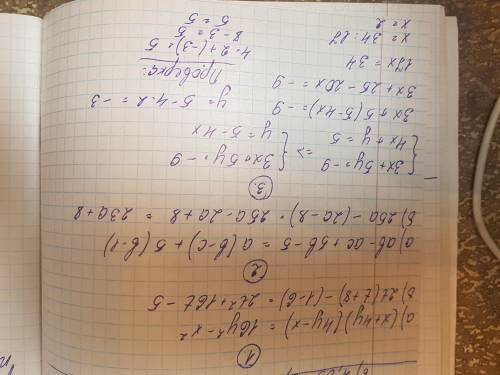 1
а) (x+4y)(4y-x) = 16y² - x²
б) 2t(t+8) - (1-6) = 2t² + 16t - 5
2
а) ab - ac + 5b - 5 = a(b-c) + 5(b-1)
б) 25a - (2a-8) = 25a - 2a + 8 = 23a + 8
3.
{ 3x + 5y = -9 { 3x + 5y = -9
{ 4x + y = 5 => { y = 5 - 4x
3x + 5(5-4x) = -9
3x + 25 - 20x = -9
17x = 34
x = 34 : 17
x = 2
y = 5 - 4·2 = -3
Проверка:
4·2 + (-3) = 5
8 - 3 = 5
5 = 5